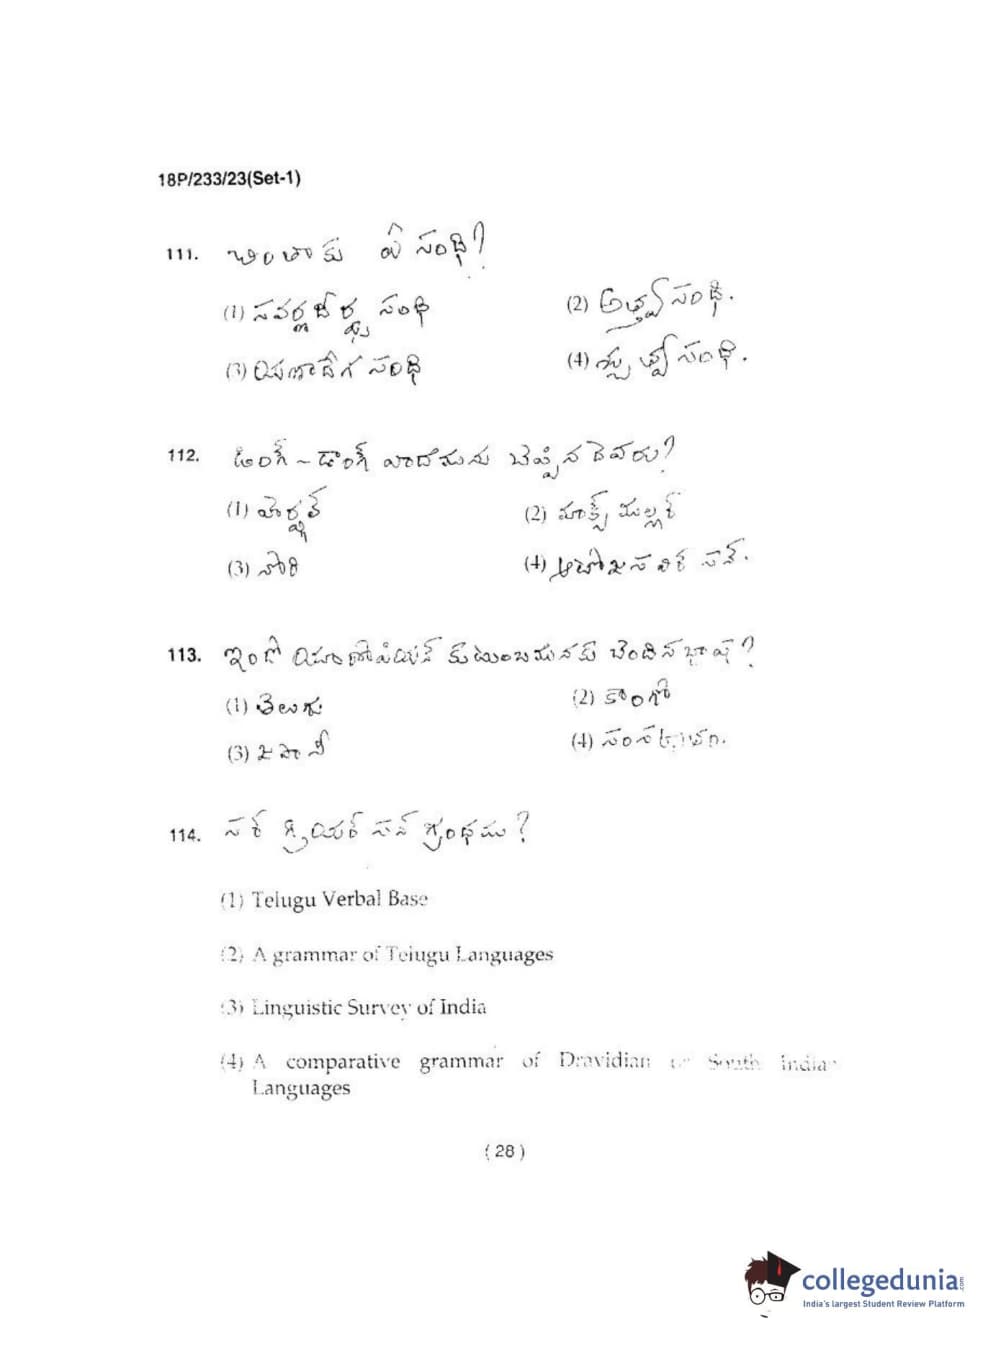 18P/233/23(Set-1)
111. చింతాకు ఏ సంధి?
(1) సవర్ణదీర్ఘ సంధి
(2) అత్వసంధి.
(3) యణాదేశ సంధి
(4) శ్చుత్వసంధి.
112. డింగ్ - డాంగ్ వాదమును చెప్పిన దెవరు?
(1) హెర్షల్
(2) మాక్స్ ముల్లర్
(3) నోరి
(4)
113. ఇండో యూరోపియన్ కుటుంబమునకు చెందిన భాష?
(1) తెలుగు
(2) కాంగో
(3) జపానీ
(4) సంస్కృతం.
114. సర్ గ్రియర్ సన్ గ్రంథము?
(1) Telugu Verbal Base
(2) A grammar of Telugu Languages
(3) Linguistic Survey of India
(4) A comparative grammar of Dravidian or South Indian
Languages
( 28 )
collegedunia.com
India's largest Student Review Platform